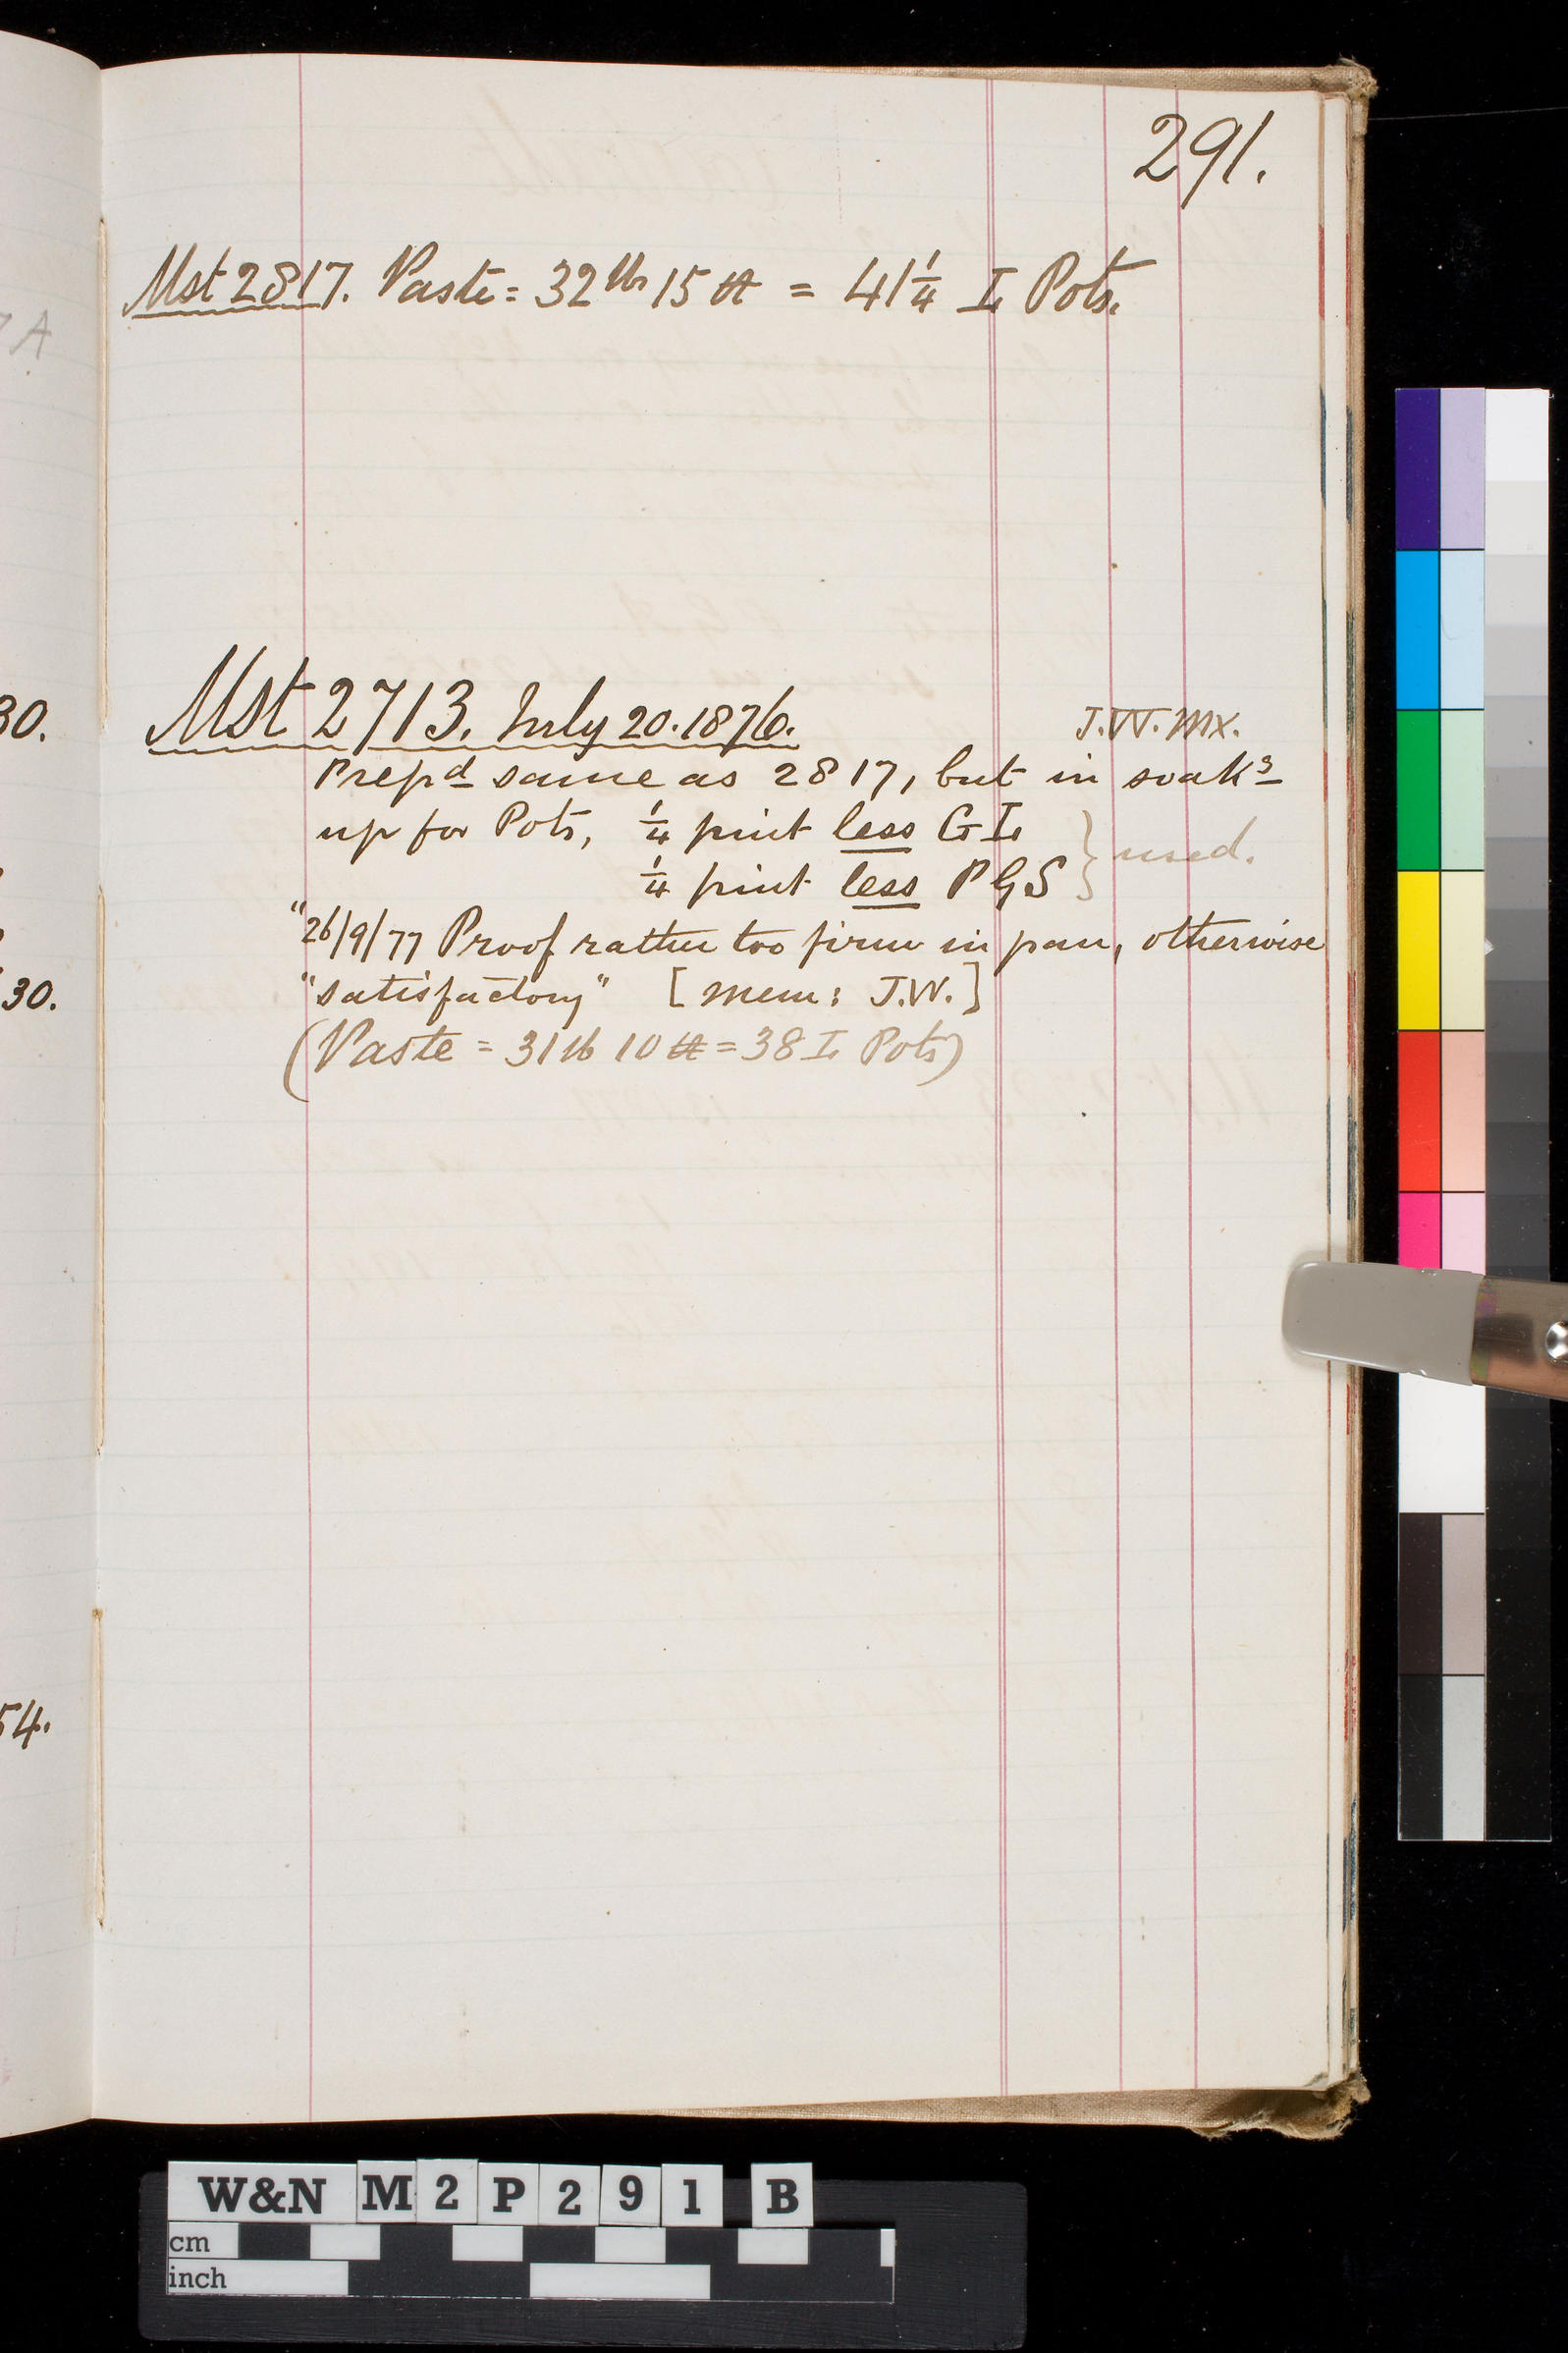 291.
Mst 2817. Paste = 32 lbs 15 tt = 41 1/4 I Pots.
Mst 2713. July 20. 1876. J.W. Mx.
Prepd same as 2817, but in soakg
up for Pots, 1/4 pint less G I
1/4 pint less P G S } used.
"26/9/77 Proof rather too firm in pan, otherwise
"satisfactory" [Mem: J.W.]
(Paste = 31 lb 10 tt = 38 I Pots)
7A
30.
30.
54.
W&N M2P291 B
cm
inch